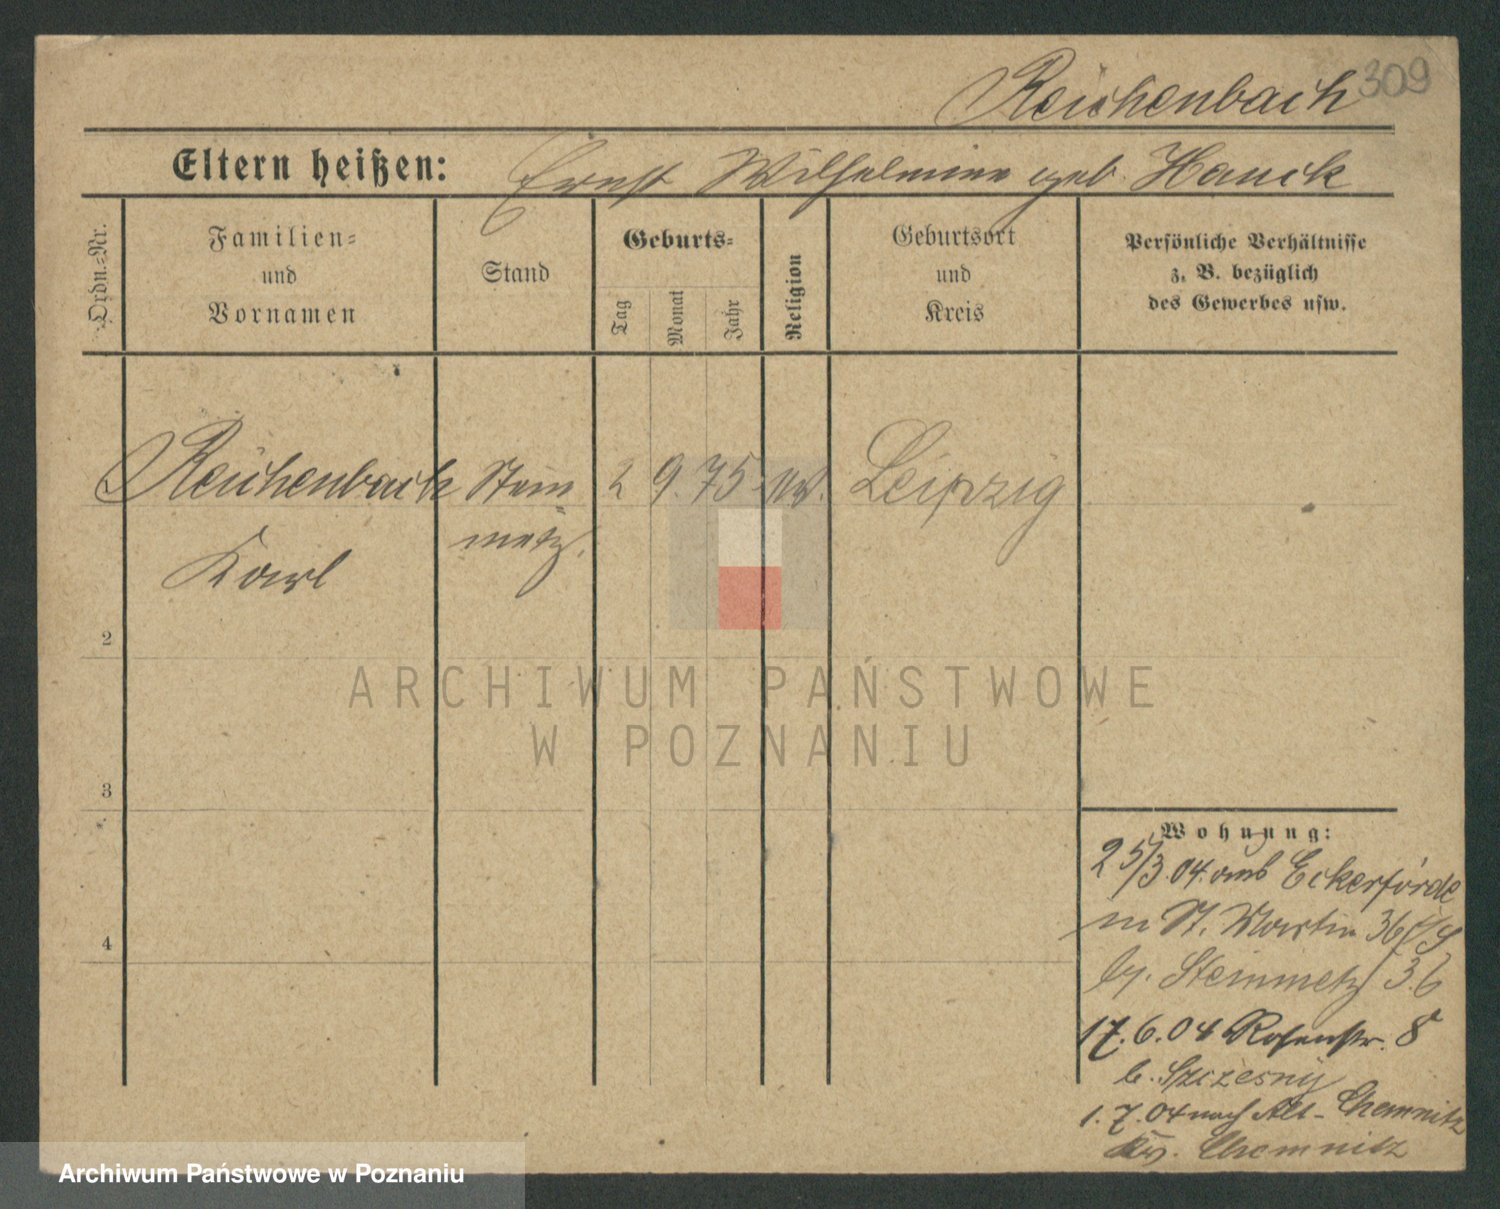 Reichenbach 309
Eltern heißen: Ernst Wilhelmine geb. Hauck
Ordn.-Nr.
Familien-
und
Vornamen
Stand
Geburts-
Tag
Monat
Jahr
Religion
Geburtsort
und
Kreis
Persönliche Verhältnisse
z. B. bezüglich
des Gewerbes usw.
Reichenbach Stein 2 9. 75. Leipzig
metz.
Karl
2
3
4
ARCHIWUM PAŃSTWOWE
W POZNANIU
Wohnung:
25/3.04. aus Eckernförde
n St. Martin 36
by. Steinmetz 3.6
17.6.04 Rosenstr. 8
b. Szczesny
1.7.04 nach Alt-Chemnitz
Chemnitz
Archiwum Państwowe w Poznaniu